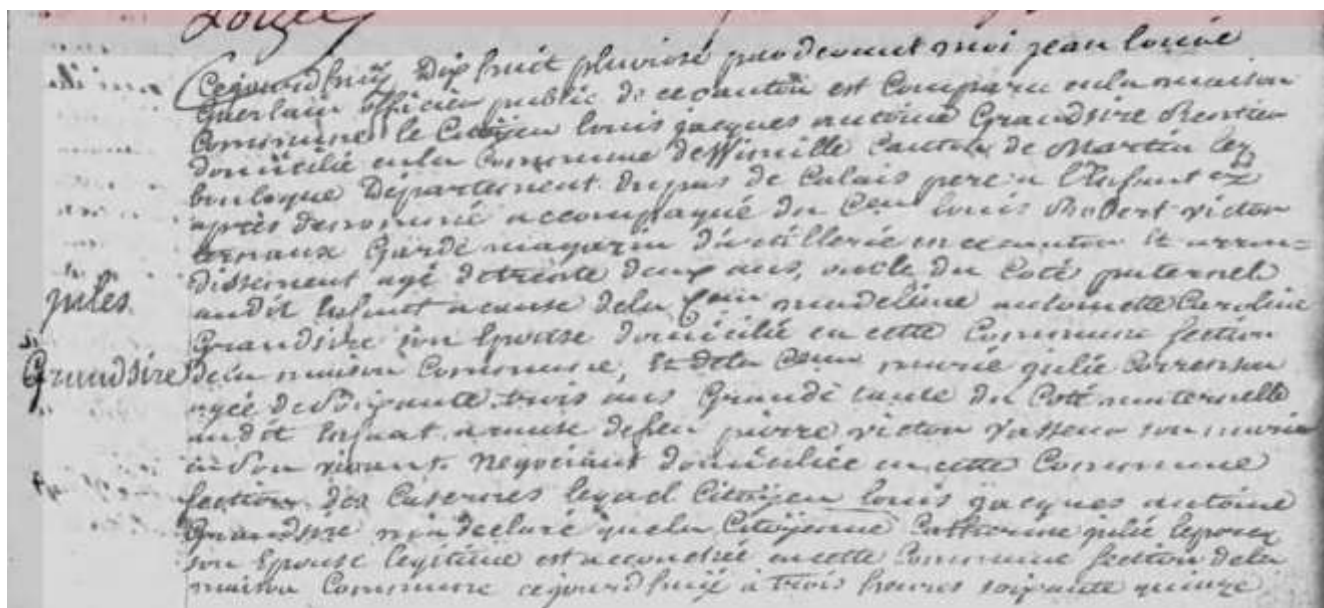 Cejourd'huy Dix huit pluviose pardevant moi jean louis
Guerlain officier public de ce canton est Comparu en la maison
Commune le Citoyen louis jacques antoine Grandsire Rentier
domicilié en la Commune de Wimille Canton de Martin lez
boulogne Département du pas de Calais pere a l'enfant cy
après denommé accompagné du Cen louis Robert victor
ternaux Garde magazin d'artillerie en ce canton et arron=
dissement agé de trente deux ans, oncle du Coté paternel
audit Enfant a cause de la Cenne madeleine antoinette Caroline
Grandsire son Epouse domicilié en cette Commune section
de la maison Commune, et de la Cenne marie julie
agée de soixante trois ans Grande tante du Coté maternelle
audit Enfant a cause de feu pierre victor Vasseur son mari
en son vivant Negociant domiciliée en cette Commune
section des Casernes lequel Citoyen louis jacques antoine
Grandsire m'a declaré que la Citoyenne Catherine julie leporcq
son Epouse legitime est accouchée en cette Commune section de la
maison Commune cejourd'huy à trois heures soixante quinze
jules
Grandsire